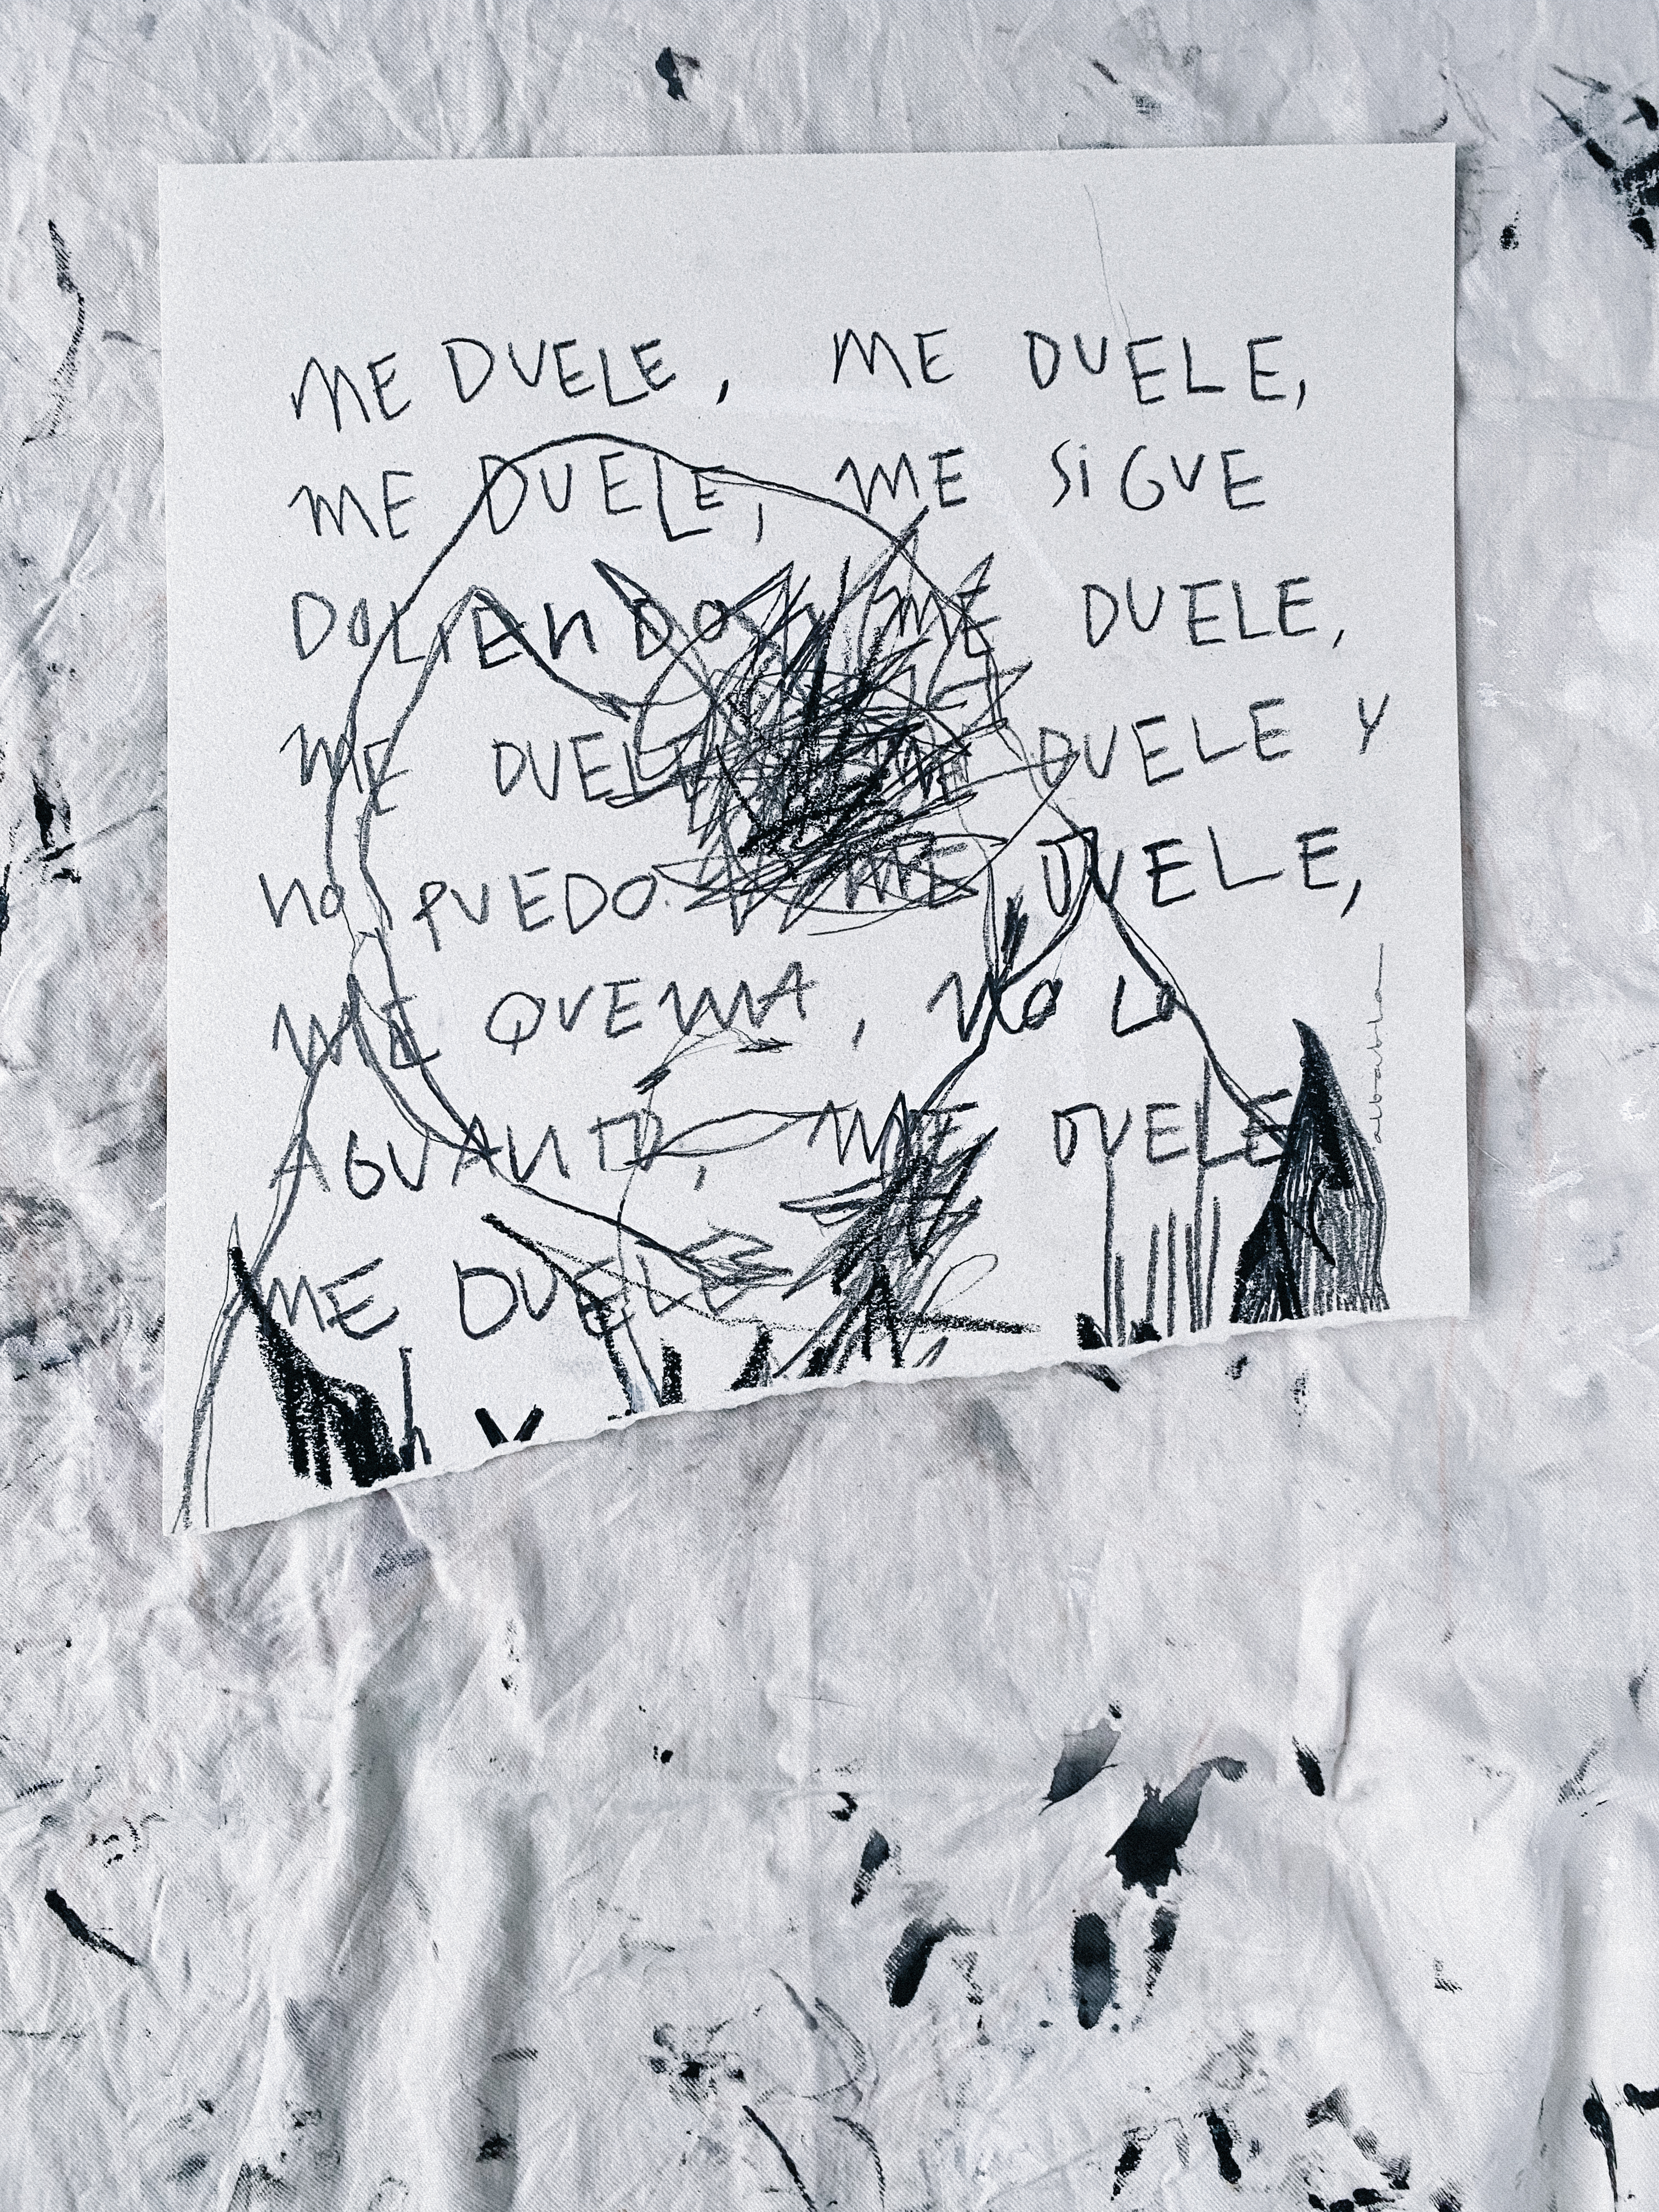 ME DUELE, ME DUELE,
ME DUELE, ME SiGUE
DOLIENDO, ME DUELE,
ME DUELE, ME DUELE Y
NO PUEDO. ME DUELE,
ME QUEMA, NO LO
AGUANTO, ME DUELE
ME DUELE
albablan